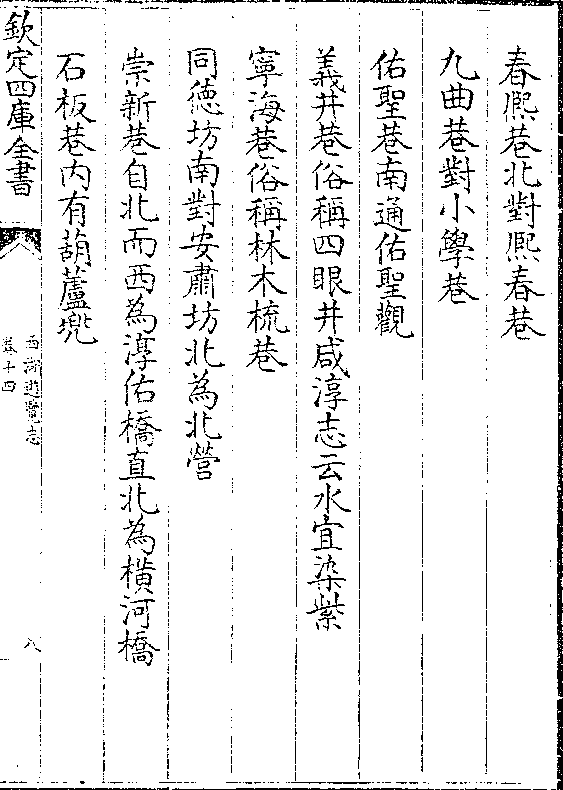 春熙巷北對熙春巷
九曲巷對小學巷
佑聖巷南通佑聖觀
義井巷俗稱四眼井咸淳志云水宜染紫
寧海巷俗稱林木梳巷
同德坊南對安肅坊北為北營
崇新巷自北而西為淳佑橋直北為橫河橋
石板巷內有葫蘆兜
欽定四庫全書
西湖遊覽志
卷十四
八